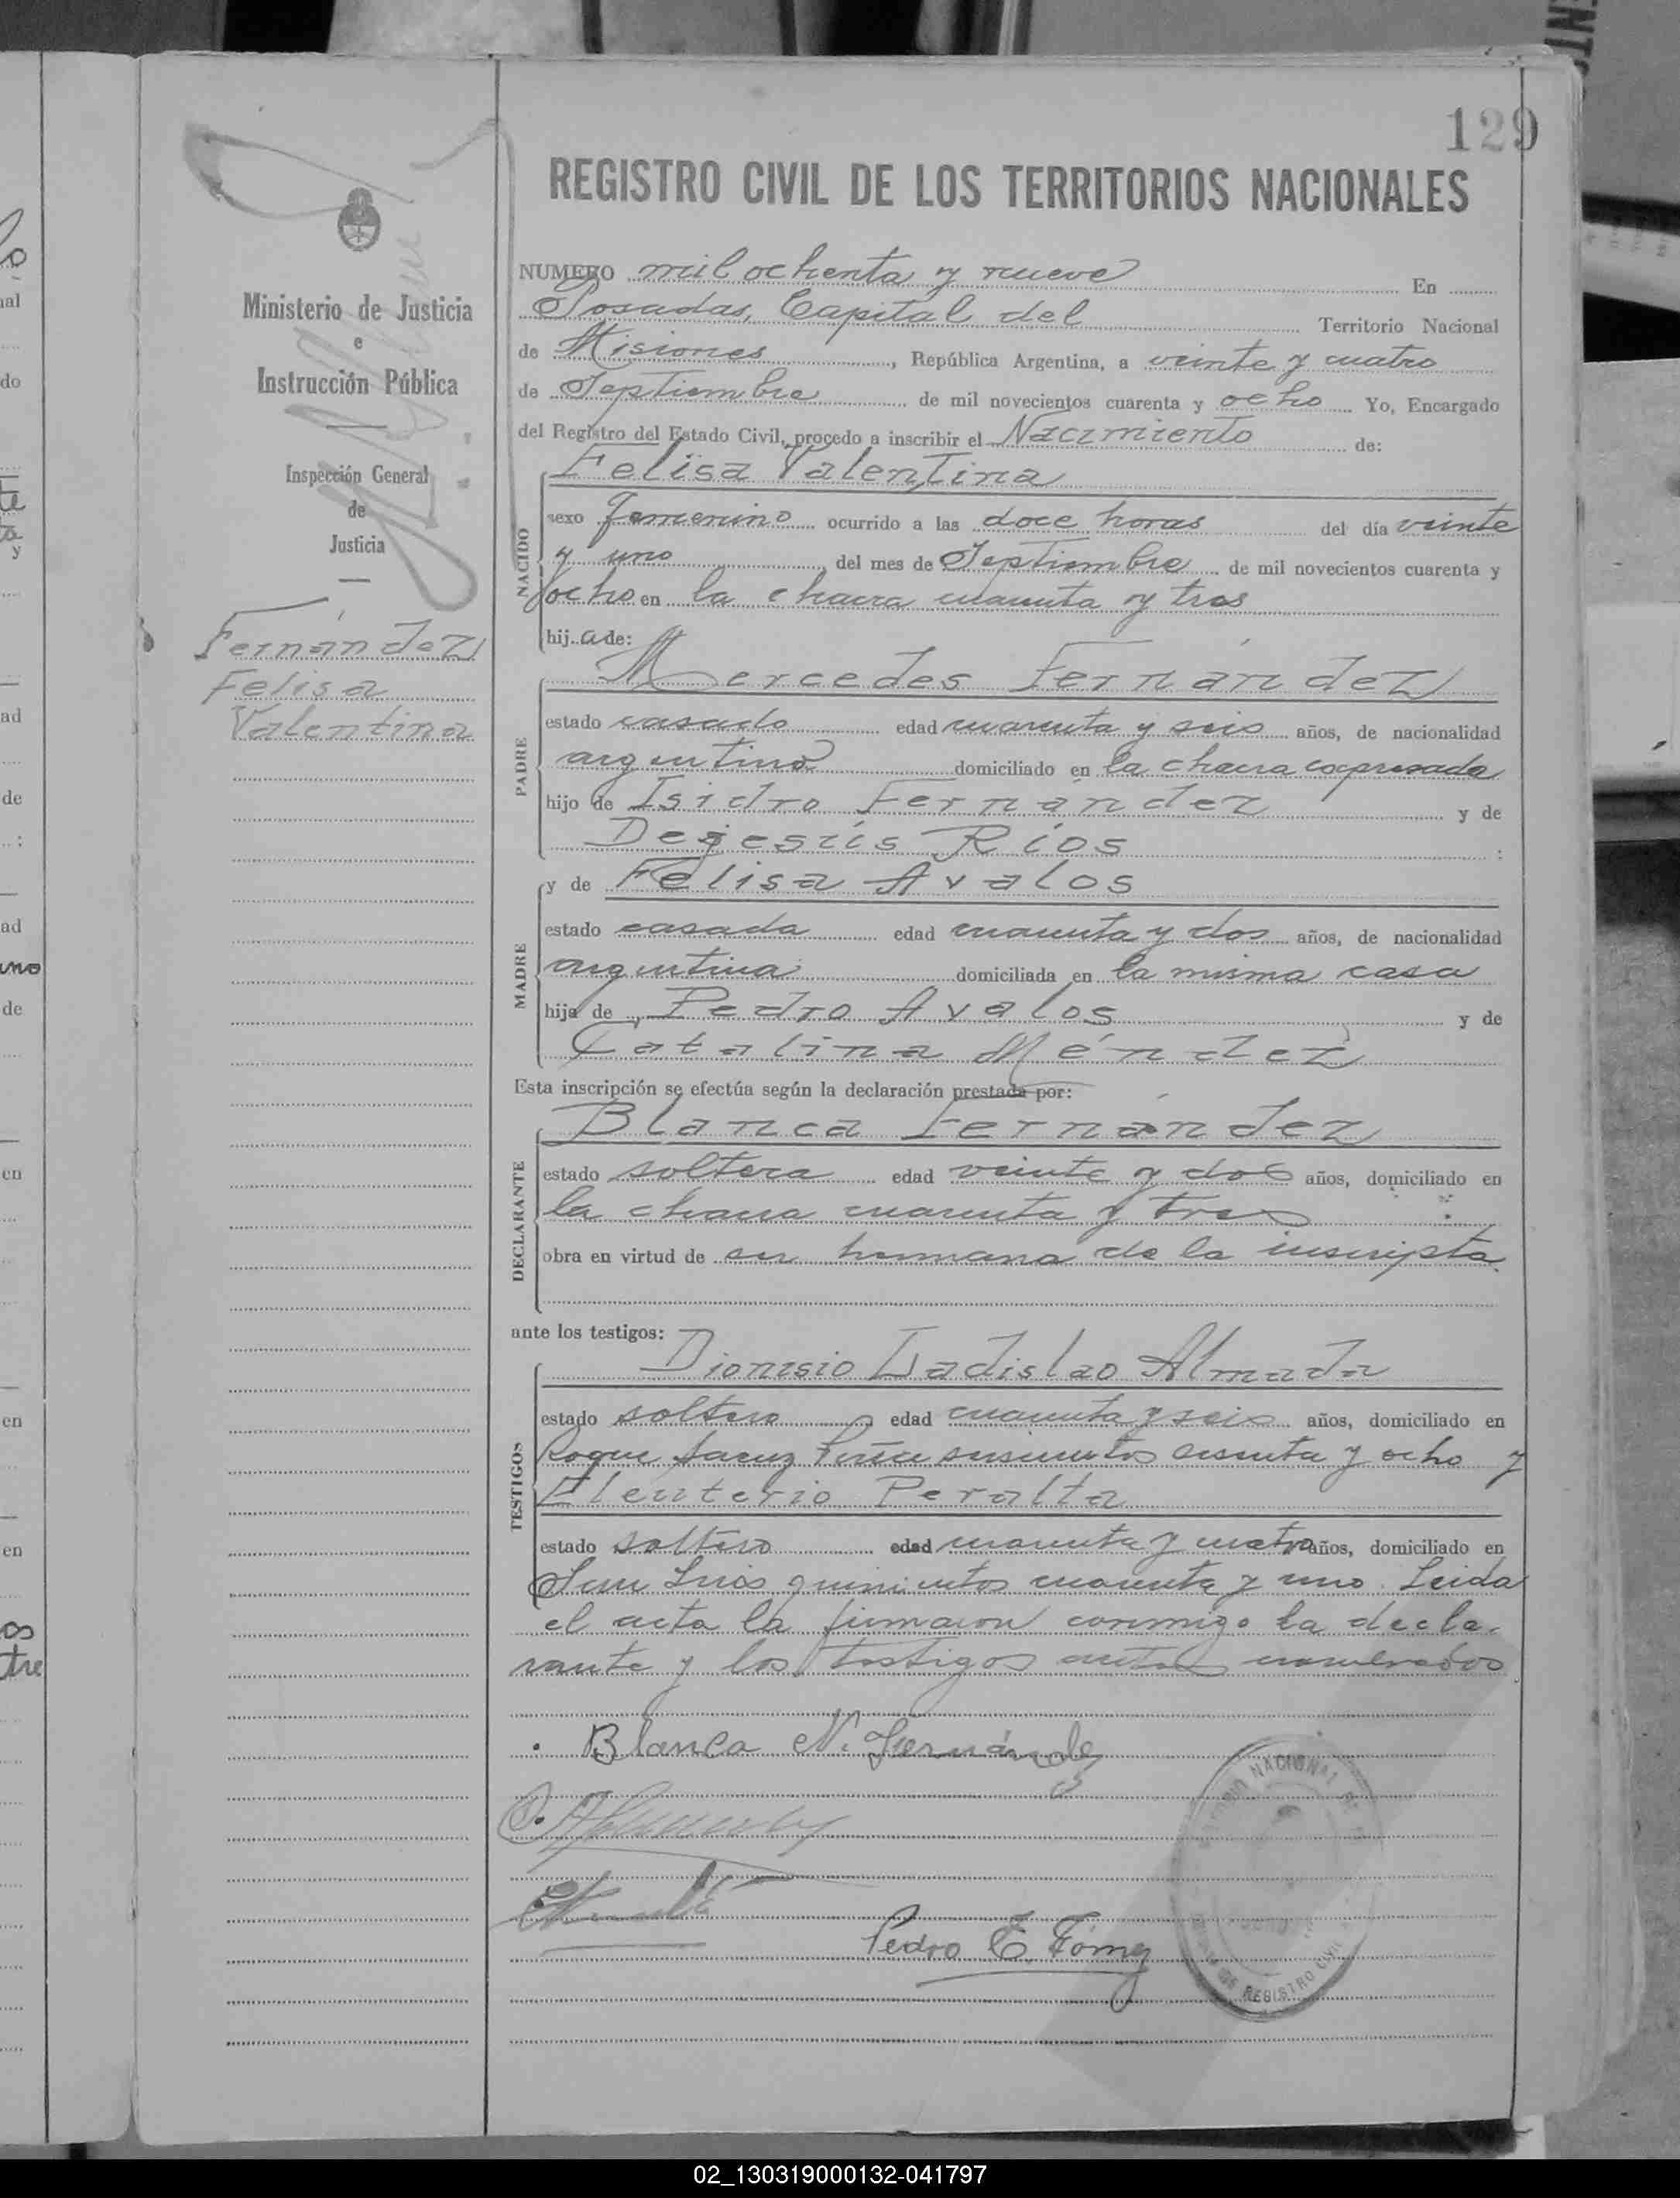 129
REGISTRO CIVIL DE LOS TERRITORIOS NACIONALES
Ministerio de Justicia
e
Instrucción Pública
Inspección General
de
Justicia
Fernández
Felisa
Valentina
NUMERO mil ochenta y nueve En
Posadas, Capital del Territorio Nacional
de Misiones, República Argentina, a veinte y cuatro
de Septiembre de mil novecientos cuarenta y ocho Yo, Encargado
del Registro del Estado Civil, procedo a inscribir el Nacimiento de:
NACIDO
Felisa Valentina
sexo femenino ocurrido a las doce horas del día veinte
y uno, del mes de Septiembre de mil novecientos cuarenta y
ocho en la chacra cuarenta y tres
hij a de:
PADRE
Mercedes Fernández
estado casado edad cuarenta y seis años, de nacionalidad
argentino domiciliado en la chacra expresada
hijo de Isidro Fernández y de
Dejesús Ríos :
MADRE
y de Felisa Avalos
estado casada edad cuarenta y dos años, de nacionalidad
argentina domiciliada en la misma casa
hija de Pedro Avalos y de
Catalina Méndez
Esta inscripción se efectúa según la declaración prestada por:
DECLARANTE
Blanca Fernández
estado soltera edad veinte y dos años, domiciliado en
la chacra cuarenta y tres
obra en virtud de ser hermana de la inscripta
ante los testigos:
TESTIGOS
Dionisio Ladislao Almada
estado soltero edad cuarenta y seis años, domiciliado en
Roque Saenz Peña seiscientos sesenta y ocho y
Eleuterio Peralta
estado soltero edad cuarenta y cuatro años, domiciliado en
San Luis quinientos cuarenta y uno. Leida
el acta la firmaron conmigo la decla-
rante y los testigos antes nombrados
Blanca N. Fernández
Pedro E.
NACIONAL
REGISTRO CIVIL
02_130319000132-041797